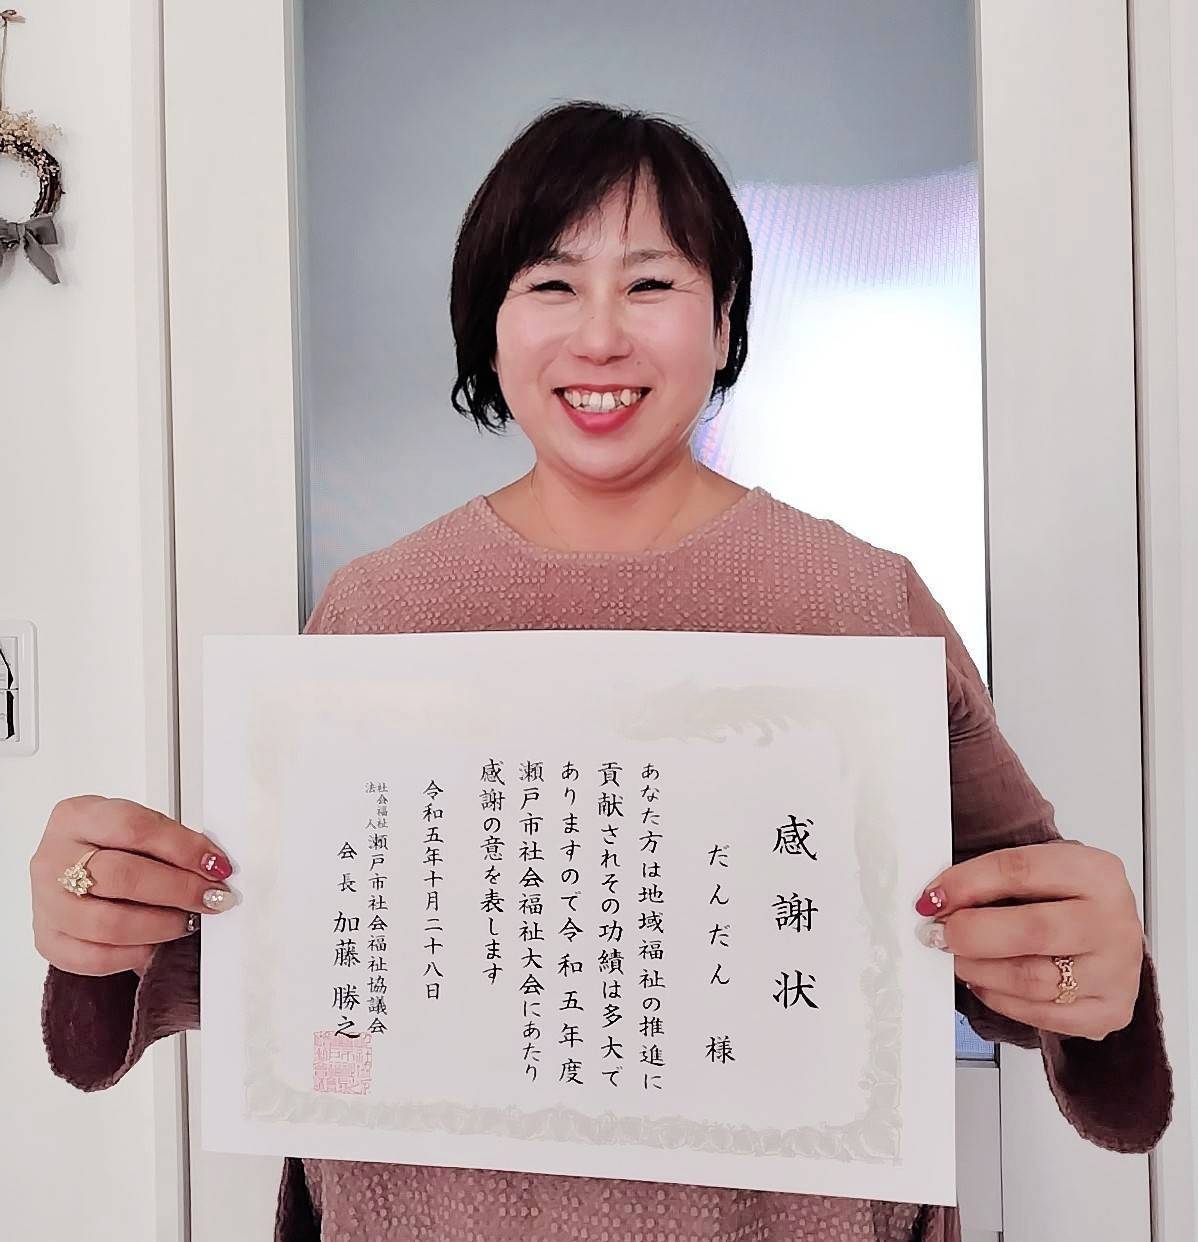 感謝状
だんだん 様
あなた方は地域福祉の推進に
貢献されその功績は多大で
ありますので令和五年度
瀬戸市社会福祉大会にあたり
感謝の意を表します
令和五年十月二十八日
社会福祉法人 瀬戸市社会福祉協議会
会長 加藤勝之